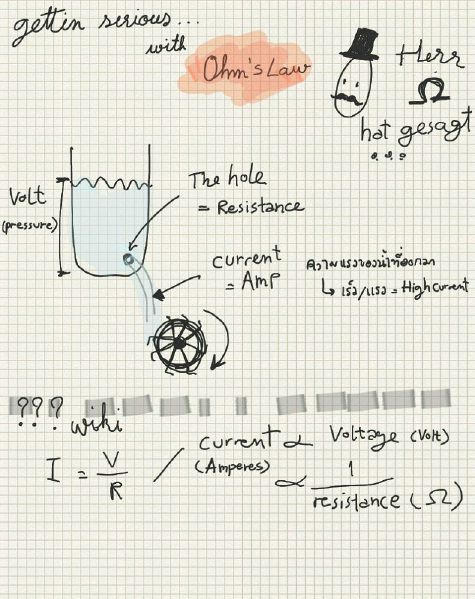 gettin serious...
with
Ohm's Law
Herr
Ω
hat gesagt
...
Volt
(pressure)
The hole
= Resistance
current
= Amp
ความแรงของน้ำที่ออกมา
↳ เร็ว/แรง = High current
???
wiki
I = V/R
/
current ∝ Voltage (Volt)
(Amperes)
∝ 1/resistance (Ω)